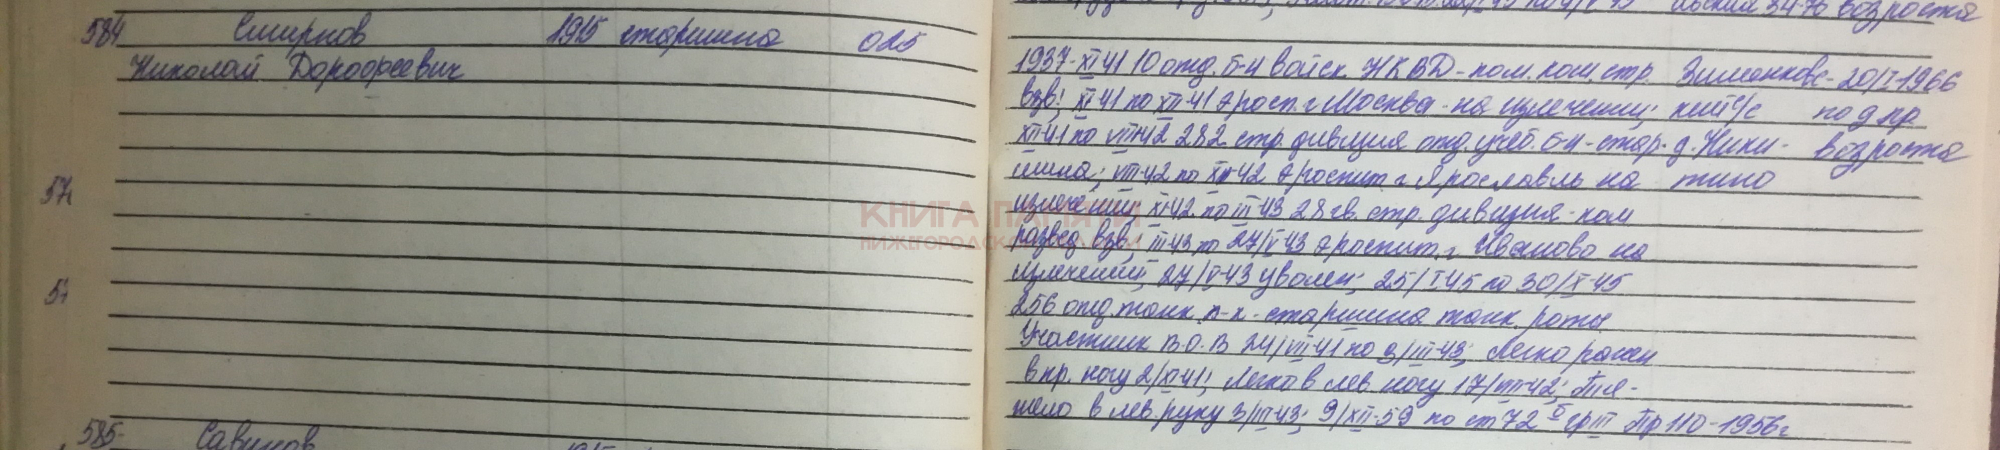 584 Смирнов 1915 старшина 025
Николай Дорофеевич
возраста
1937-XI-41 10 отд. б-н войск НКВД - пом. ком. стр. Зиманков - 20/I-1966
взв; XI-41 по XII-41 эвакогосп. г. Москва - на излечении; под пр
XII-41 по VIII-42 282 стр. дивизия отд. учеб. б-н - стар- д. Ники- возраста
шина; VIII-42 по XI-42 эвакогоспит. г. Ярославль на тино
излечении; XI-42 по III-43 28 гв. стр. дивизия - ком
развед взв; III-43 по 27/V-43 г. Иваново на
излечении; 27/V-43 уволен; 25/I-45 по 30/X-45
256 отд. танк. п-к - старшина танк. роты
Участник В.О.В 24/VIII-41 по 3/III-43; Легко ранен
в пр. ногу 2/XI-41; Легко в лев. ногу 17/VIII-42; Тя-
жело в лев. руку 3/III-43; 9/XII-59 по ст 72 гр III Пр 110-1956г
57
57
585- Савинов 1915
КНИГА ПАМЯТИ